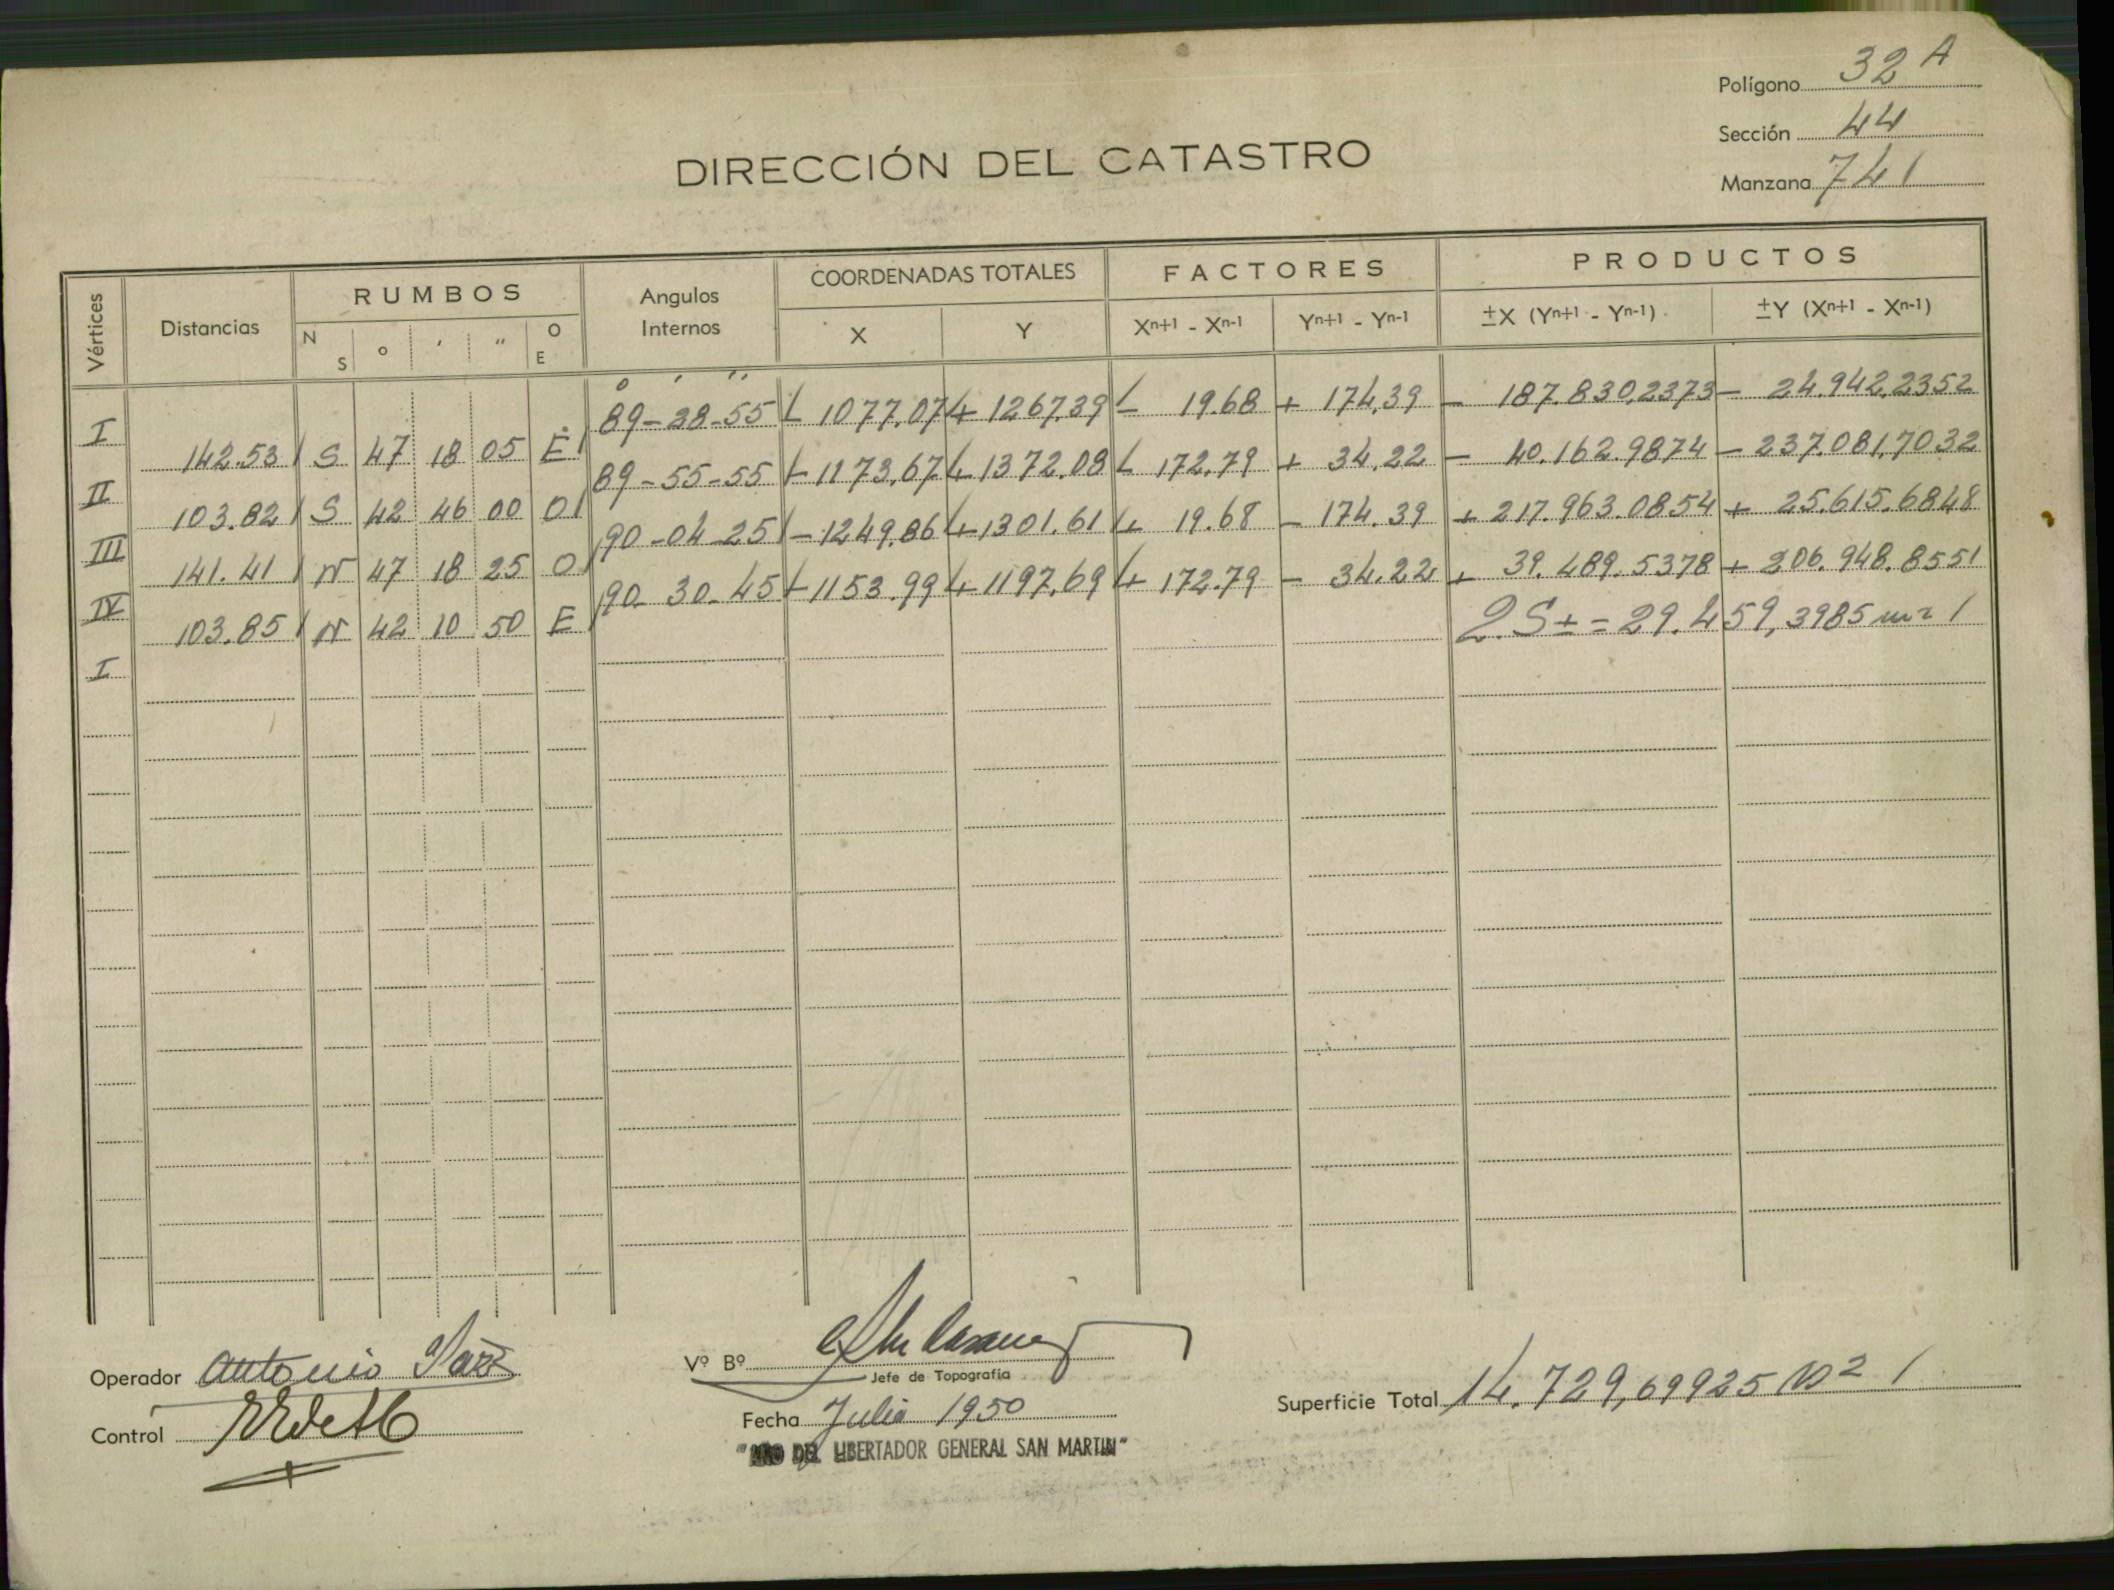 Polígono 32 A
Sección 44
Manzana 741
DIRECCIÓN DEL CATASTRO
Vértices Distancias RUMBOS Angulos Internos COORDENADAS TOTALES FACTORES PRODUCTOS
N S ° ' " O E X Y Xn+1 - Xn-1 Yn+1 - Yn-1 ±X (Yn+1 - Yn-1) ±Y (Xn+1 - Xn-1)
° ' "
I 89-28-55 - 1077.07 + 1267.39 - 19.68 + 174,39 - 187.830,2373 - 24.942,2352
142.53 S 47 18 05 E
II 89-55-55 - 1173,67 + 1372.08 - 172,79 + 34,22 - 40.162.9874 - 237.081,7032
103.82 S 42 46 00 O
III 90-04-25 - 1249,86 + 1301.61 + 19.68 - 174.39 + 217.963.0854 + 25.615.6848
141.41 N 47 18 25 O
IV 90-30-45 - 1153.99 + 1197.69 + 172.79 - 34.22 + 39.489.5378 + 206.948.8551
103.85 N 42 10 50 E
2.S± = 29.459,3985 m2
I
Operador Antonio
Vº Bº
Jefe de Topografía
Superficie Total 14.729,69925 m2
Control
Fecha Julio 1950
"AÑO DEL LIBERTADOR GENERAL SAN MARTIN"